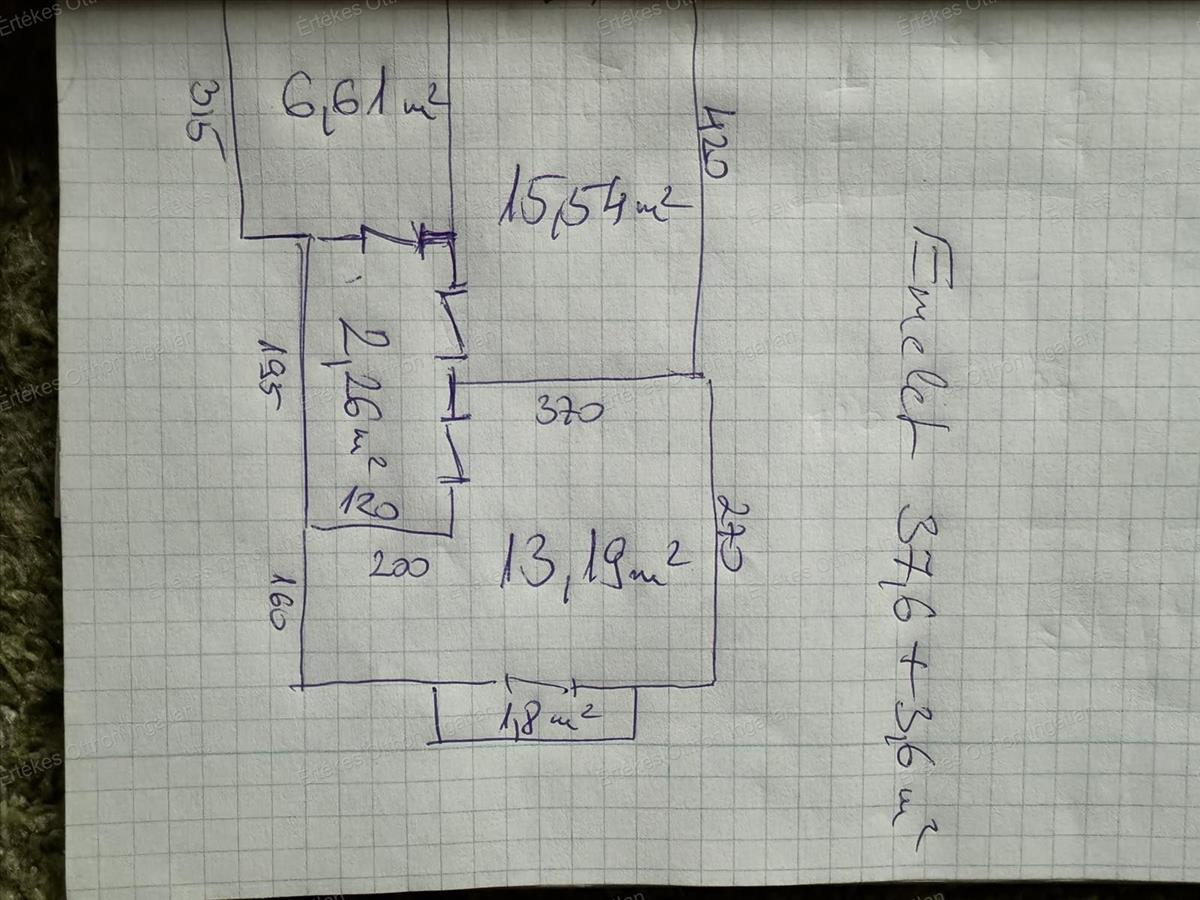 315
6,61 m²
420
15,54 m²
195
2,26 m²
370
120
200
160
13,19 m²
270
1,8 m²
Emelet 37,6 + 3,6 m²
Értékes Otthon Ingatlan